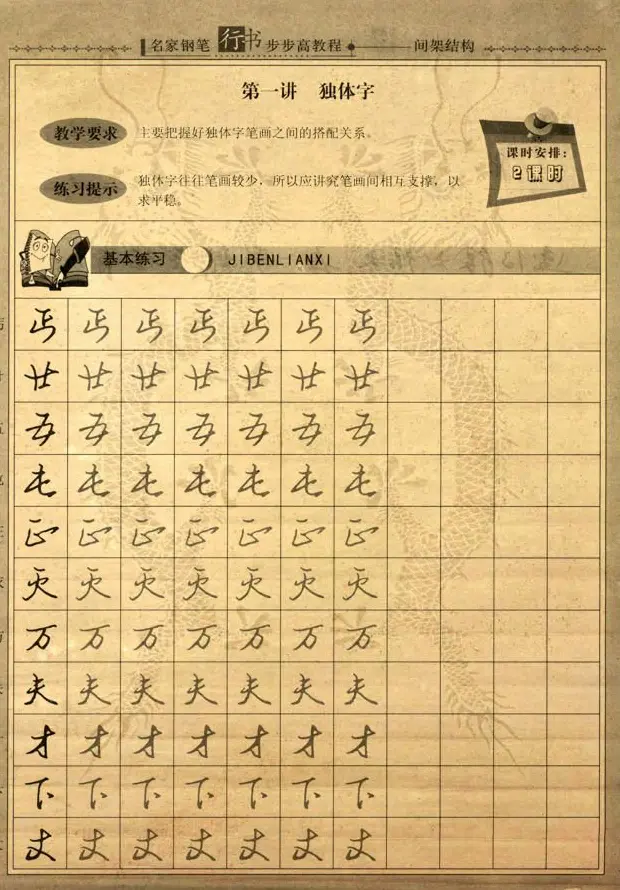 名家钢笔行书步步高教程 间架结构
第一讲 独体字
教学要求 主要把握好独体字笔画之间的搭配关系。
课时安排:
2课时
练习提示 独体字往往笔画较少,所以应讲究笔画间相互支撑,以
求平稳。
基本练习 JIBENLIANXI
丐丐丐丐丐丐丐
廿廿廿廿廿廿廿
五五五五五五五
屯屯屯屯屯屯屯
正正正正正正正
万万万万万万万
夫夫夫夫夫夫夫
才才才才才才才
下下下下下下下
丈丈丈丈丈丈丈